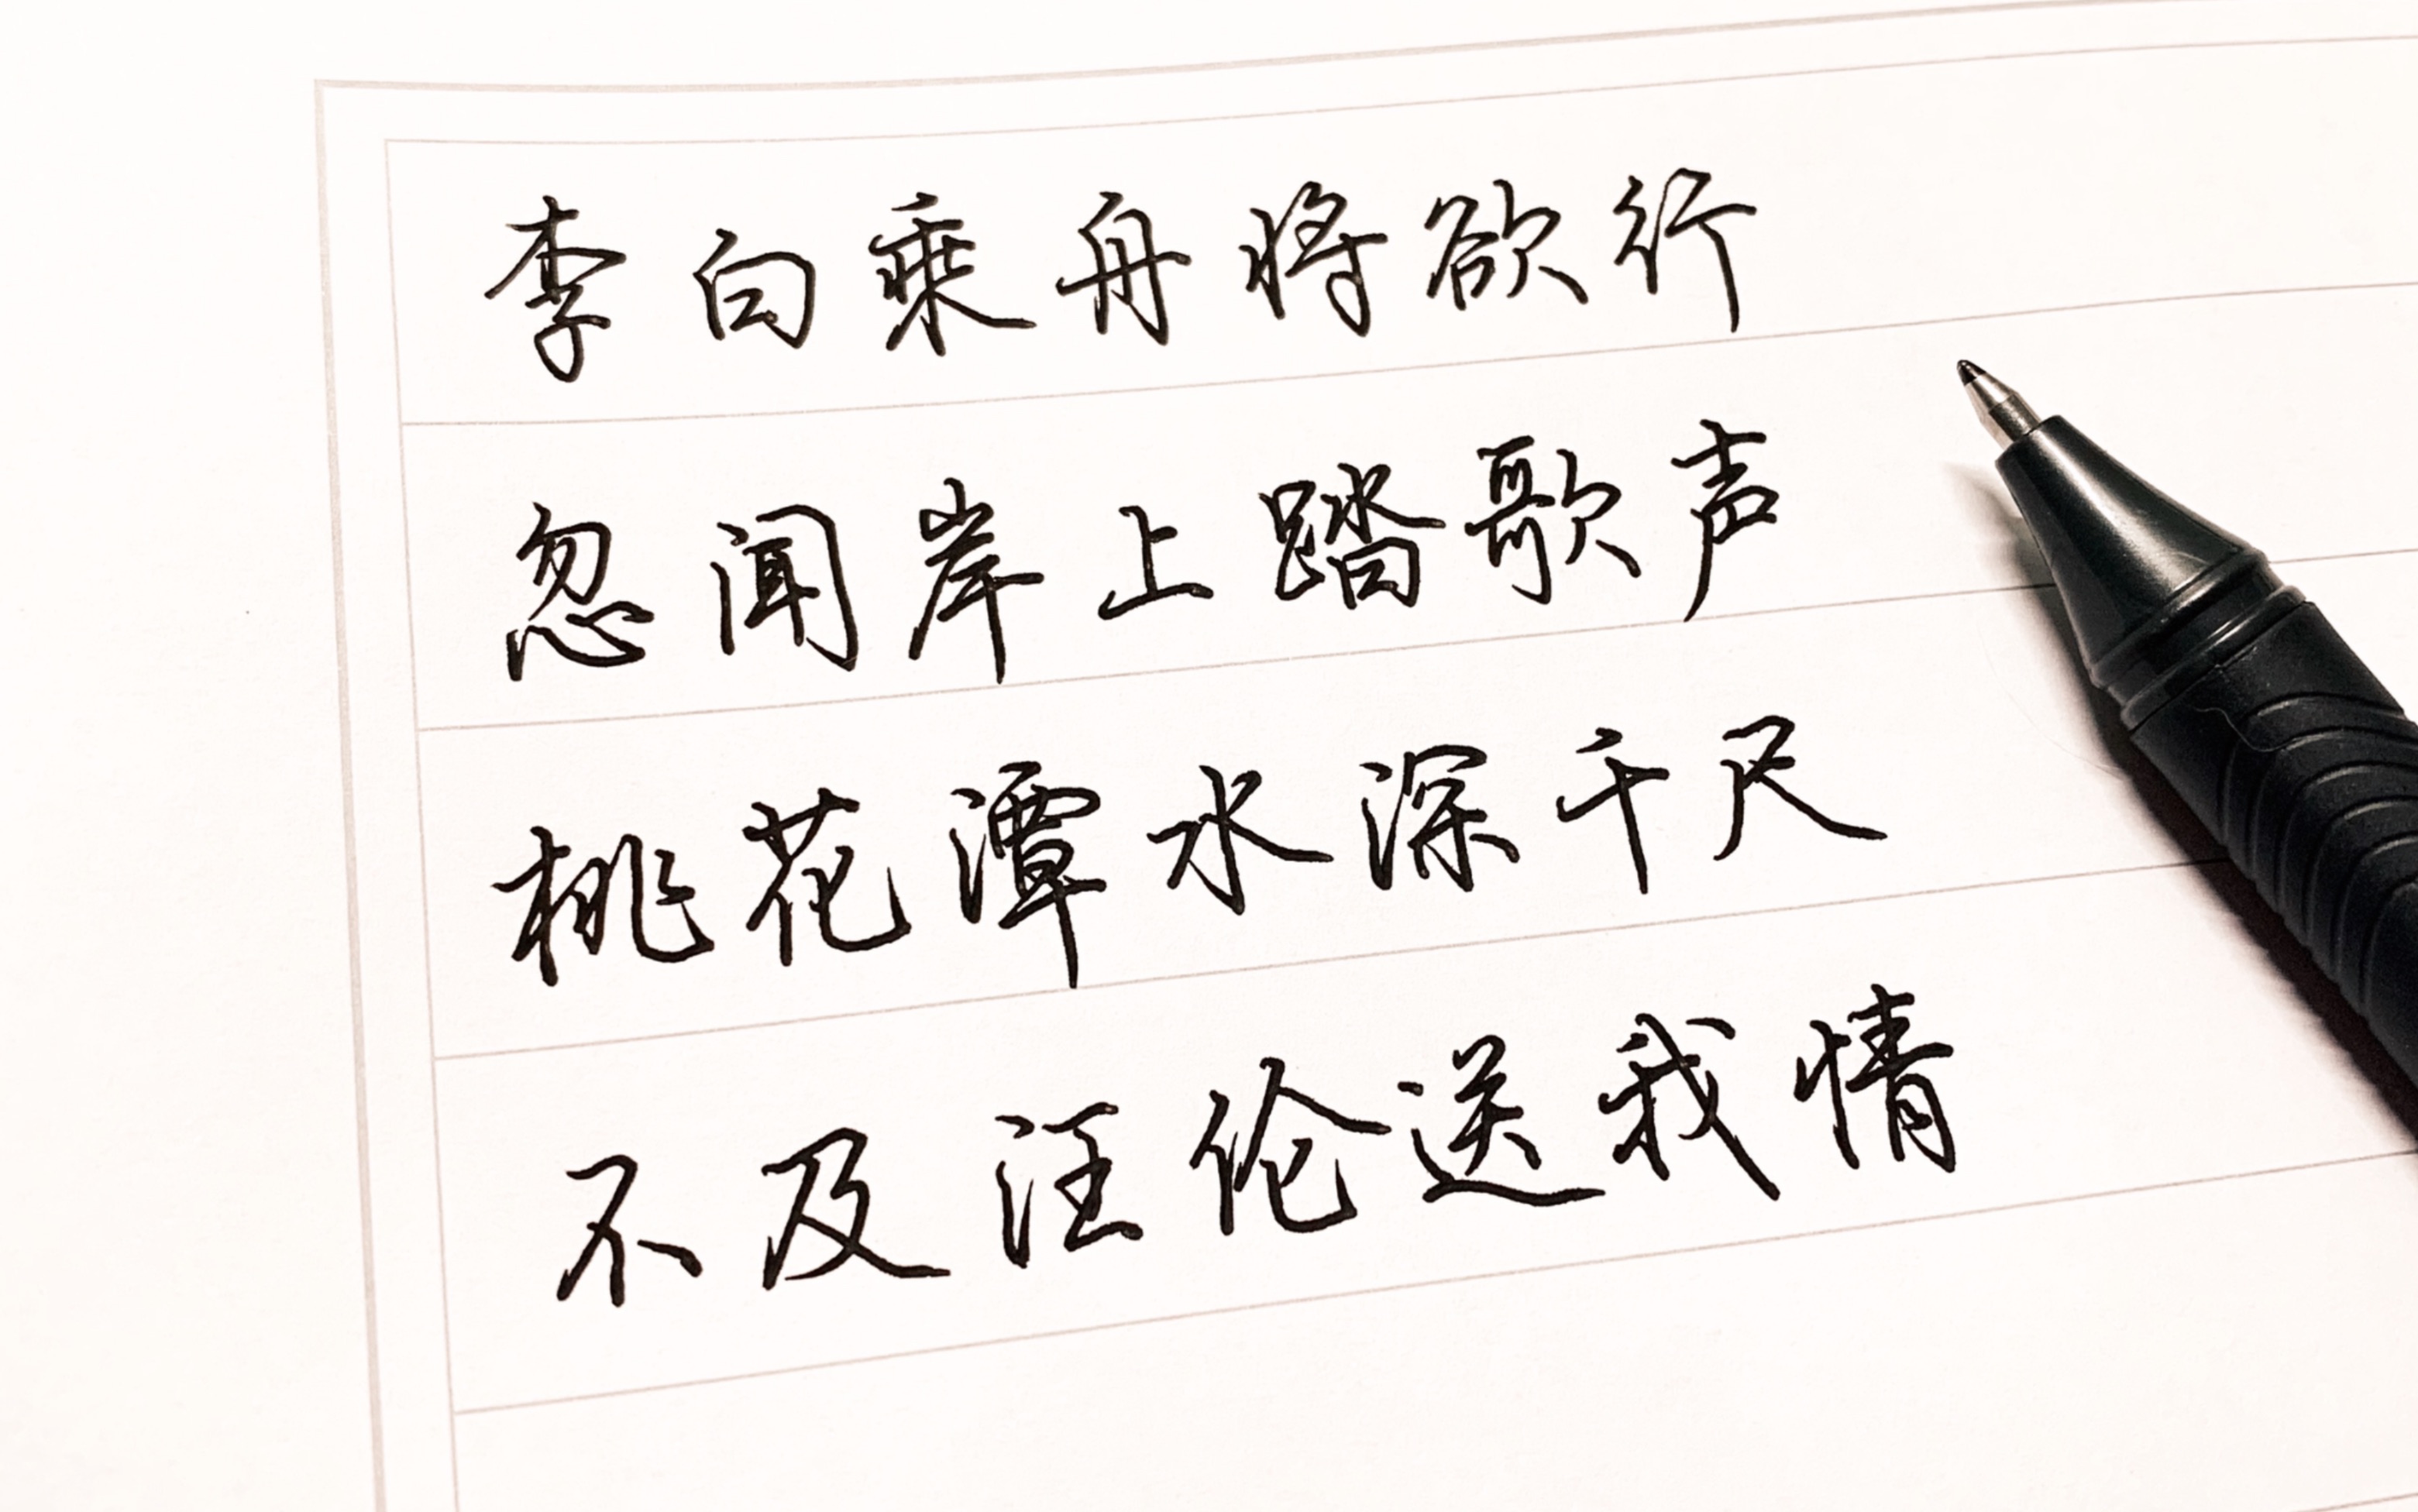 李白乘舟将欲行
忽闻岸上踏歌声
桃花潭水深千尺
不及汪伦送我情